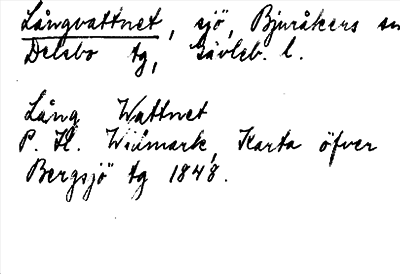 Långvattnet, sjö, Bjuråkers sn
Delsbo tg, Gävleb. l.
Lång Wattnet
P. H. Widmark, Karta öfver
Bergsjö tg 1848.